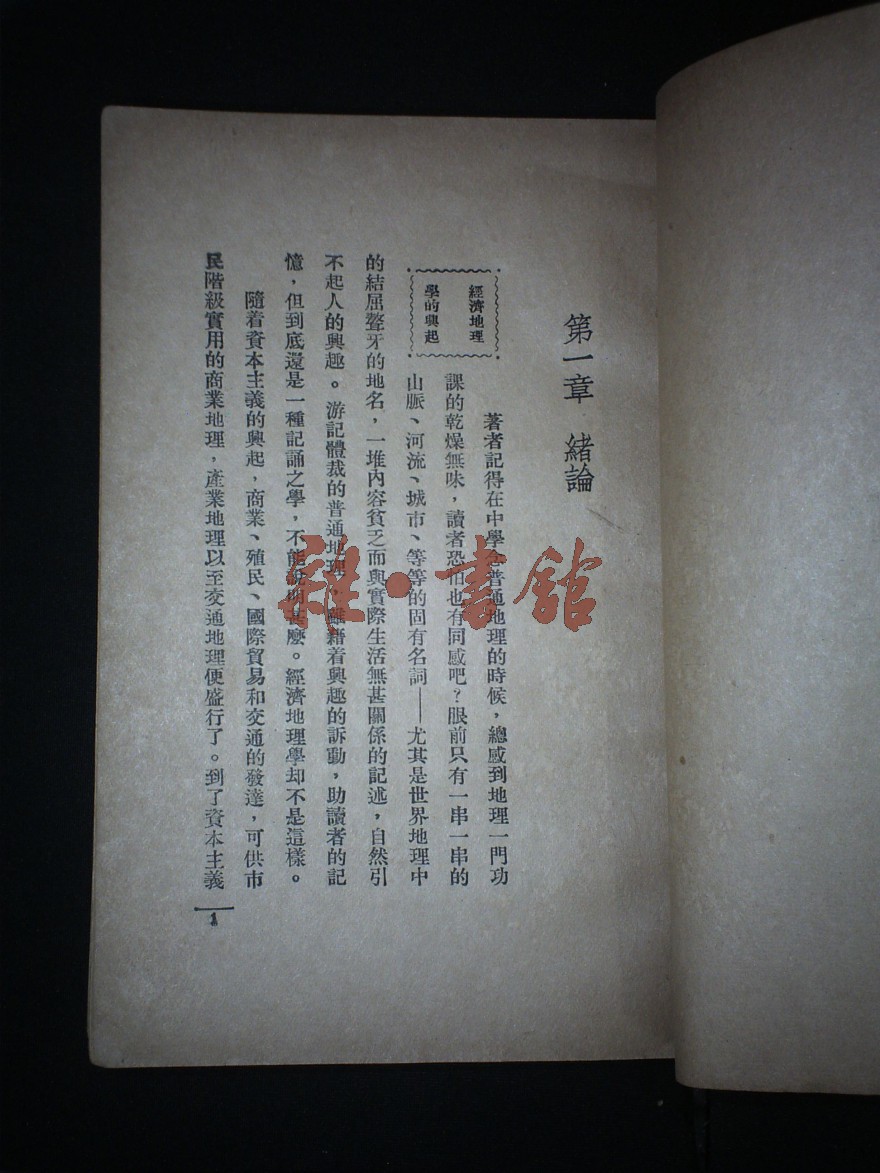 第一章 緒論
經濟地理
學的興起
著者記得在中學念普通地理的時候，總感到地理一門功
課的乾燥無味，讀者恐怕也有同感吧？眼前只有一串一串的
山脈、河流、城市、等等的固有名詞——尤其是世界地理中
的結屈聱牙的地名，一堆內容貧乏而與實際生活無甚關係的記述，自然引
不起人的興趣。游記體裁的普通地理，雖藉着興趣的訴動，助讀者的記
憶，但到底還是一種記誦之學，不能說明甚麼。經濟地理學却不是這樣。
隨着資本主義的興起，商業、殖民、國際貿易和交通的發達，可供市
民階級實用的商業地理，產業地理以至交通地理便盛行了。到了資本主義
1
雜·書館